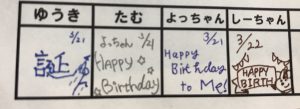 ゆうき
たむ
よっちゃん
しーちゃん
3/21
誕
よっちゃん 3/21
HAPPY
Birthday
3/21
Happy
Birthday
to Me!
3/22
HAPPY
BIRTH